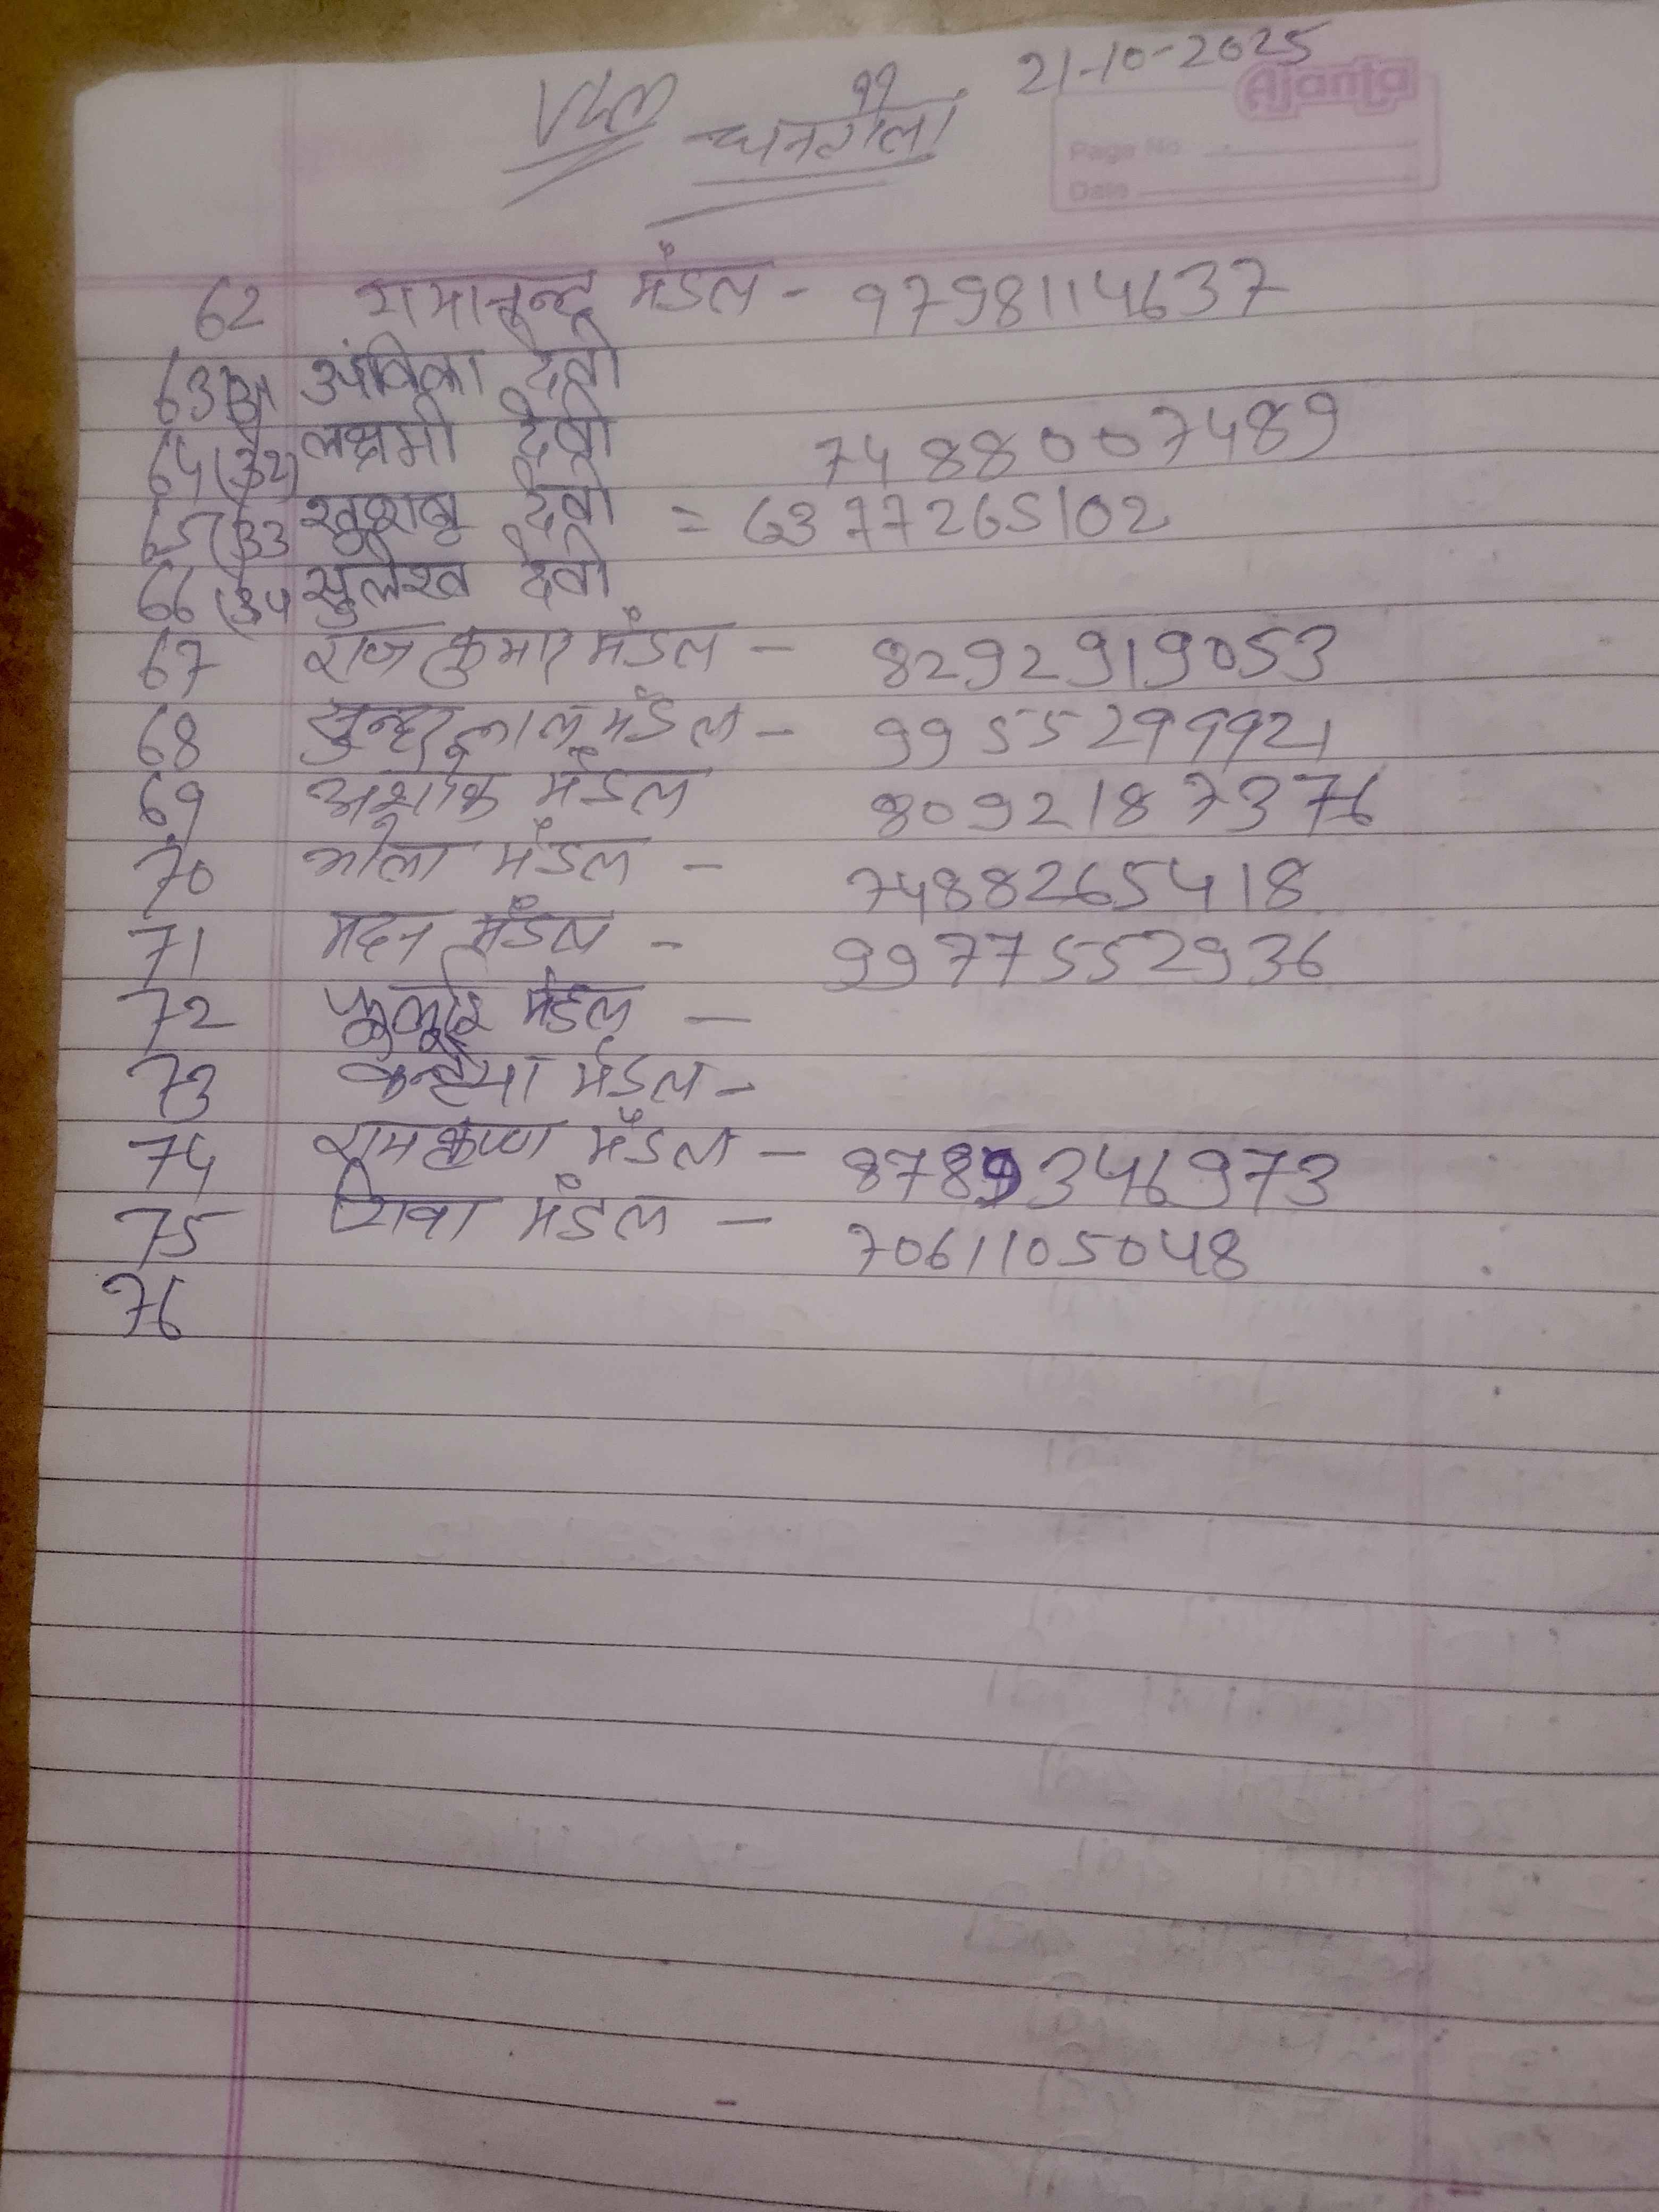 21-10-2025
Ajanta
Page No
Date
62 रामानन्द मंडल - 9798114637
63(31 अंबिका देवी
64(32) लक्ष्मी देवी 7488007489
65(33 खुशबू देवी = 6377265102
66(34 सुलेख देवी
67 राज कुमार मंडल - 8292919053
68 सुन्दर लाल मंडल - 9955299921
69 अशोक मंडल 8092187376
70 भोला मंडल - 7488265418
71 मदन मंडल - 9977552936
72 मंडल -
73 कन्हैया मंडल -
74 रामकृष्ण मंडल - 8789346973
75 शिवा मंडल - 7061105048
76